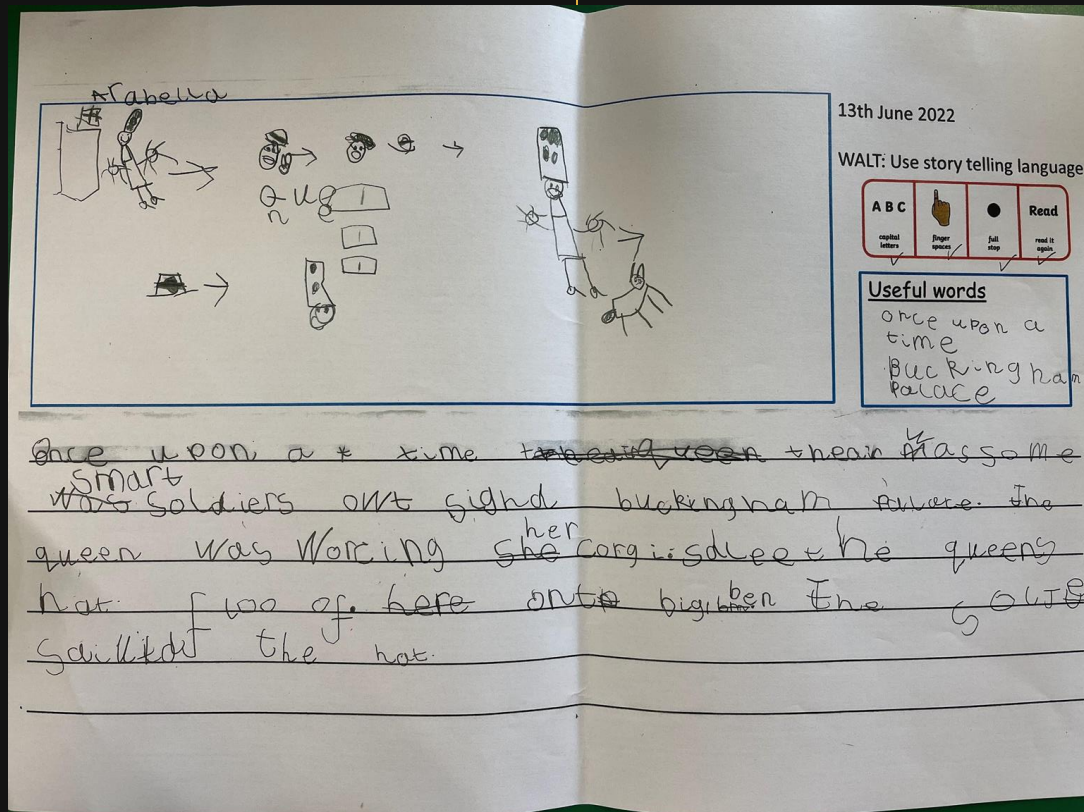 Arabella
13th June 2022
WALT: Use story telling language
A B C
Read
capital letters
finger spaces
full stop
read it again
Quee
n
Useful words
once upon a
time
Buckingham
Palace
Once upon a time theair was some
smart
soldiers owt signd buckingham Palace. The
her
queen was Worcing she corgi
queens
hat floo of. here onto big ben The
the hat.